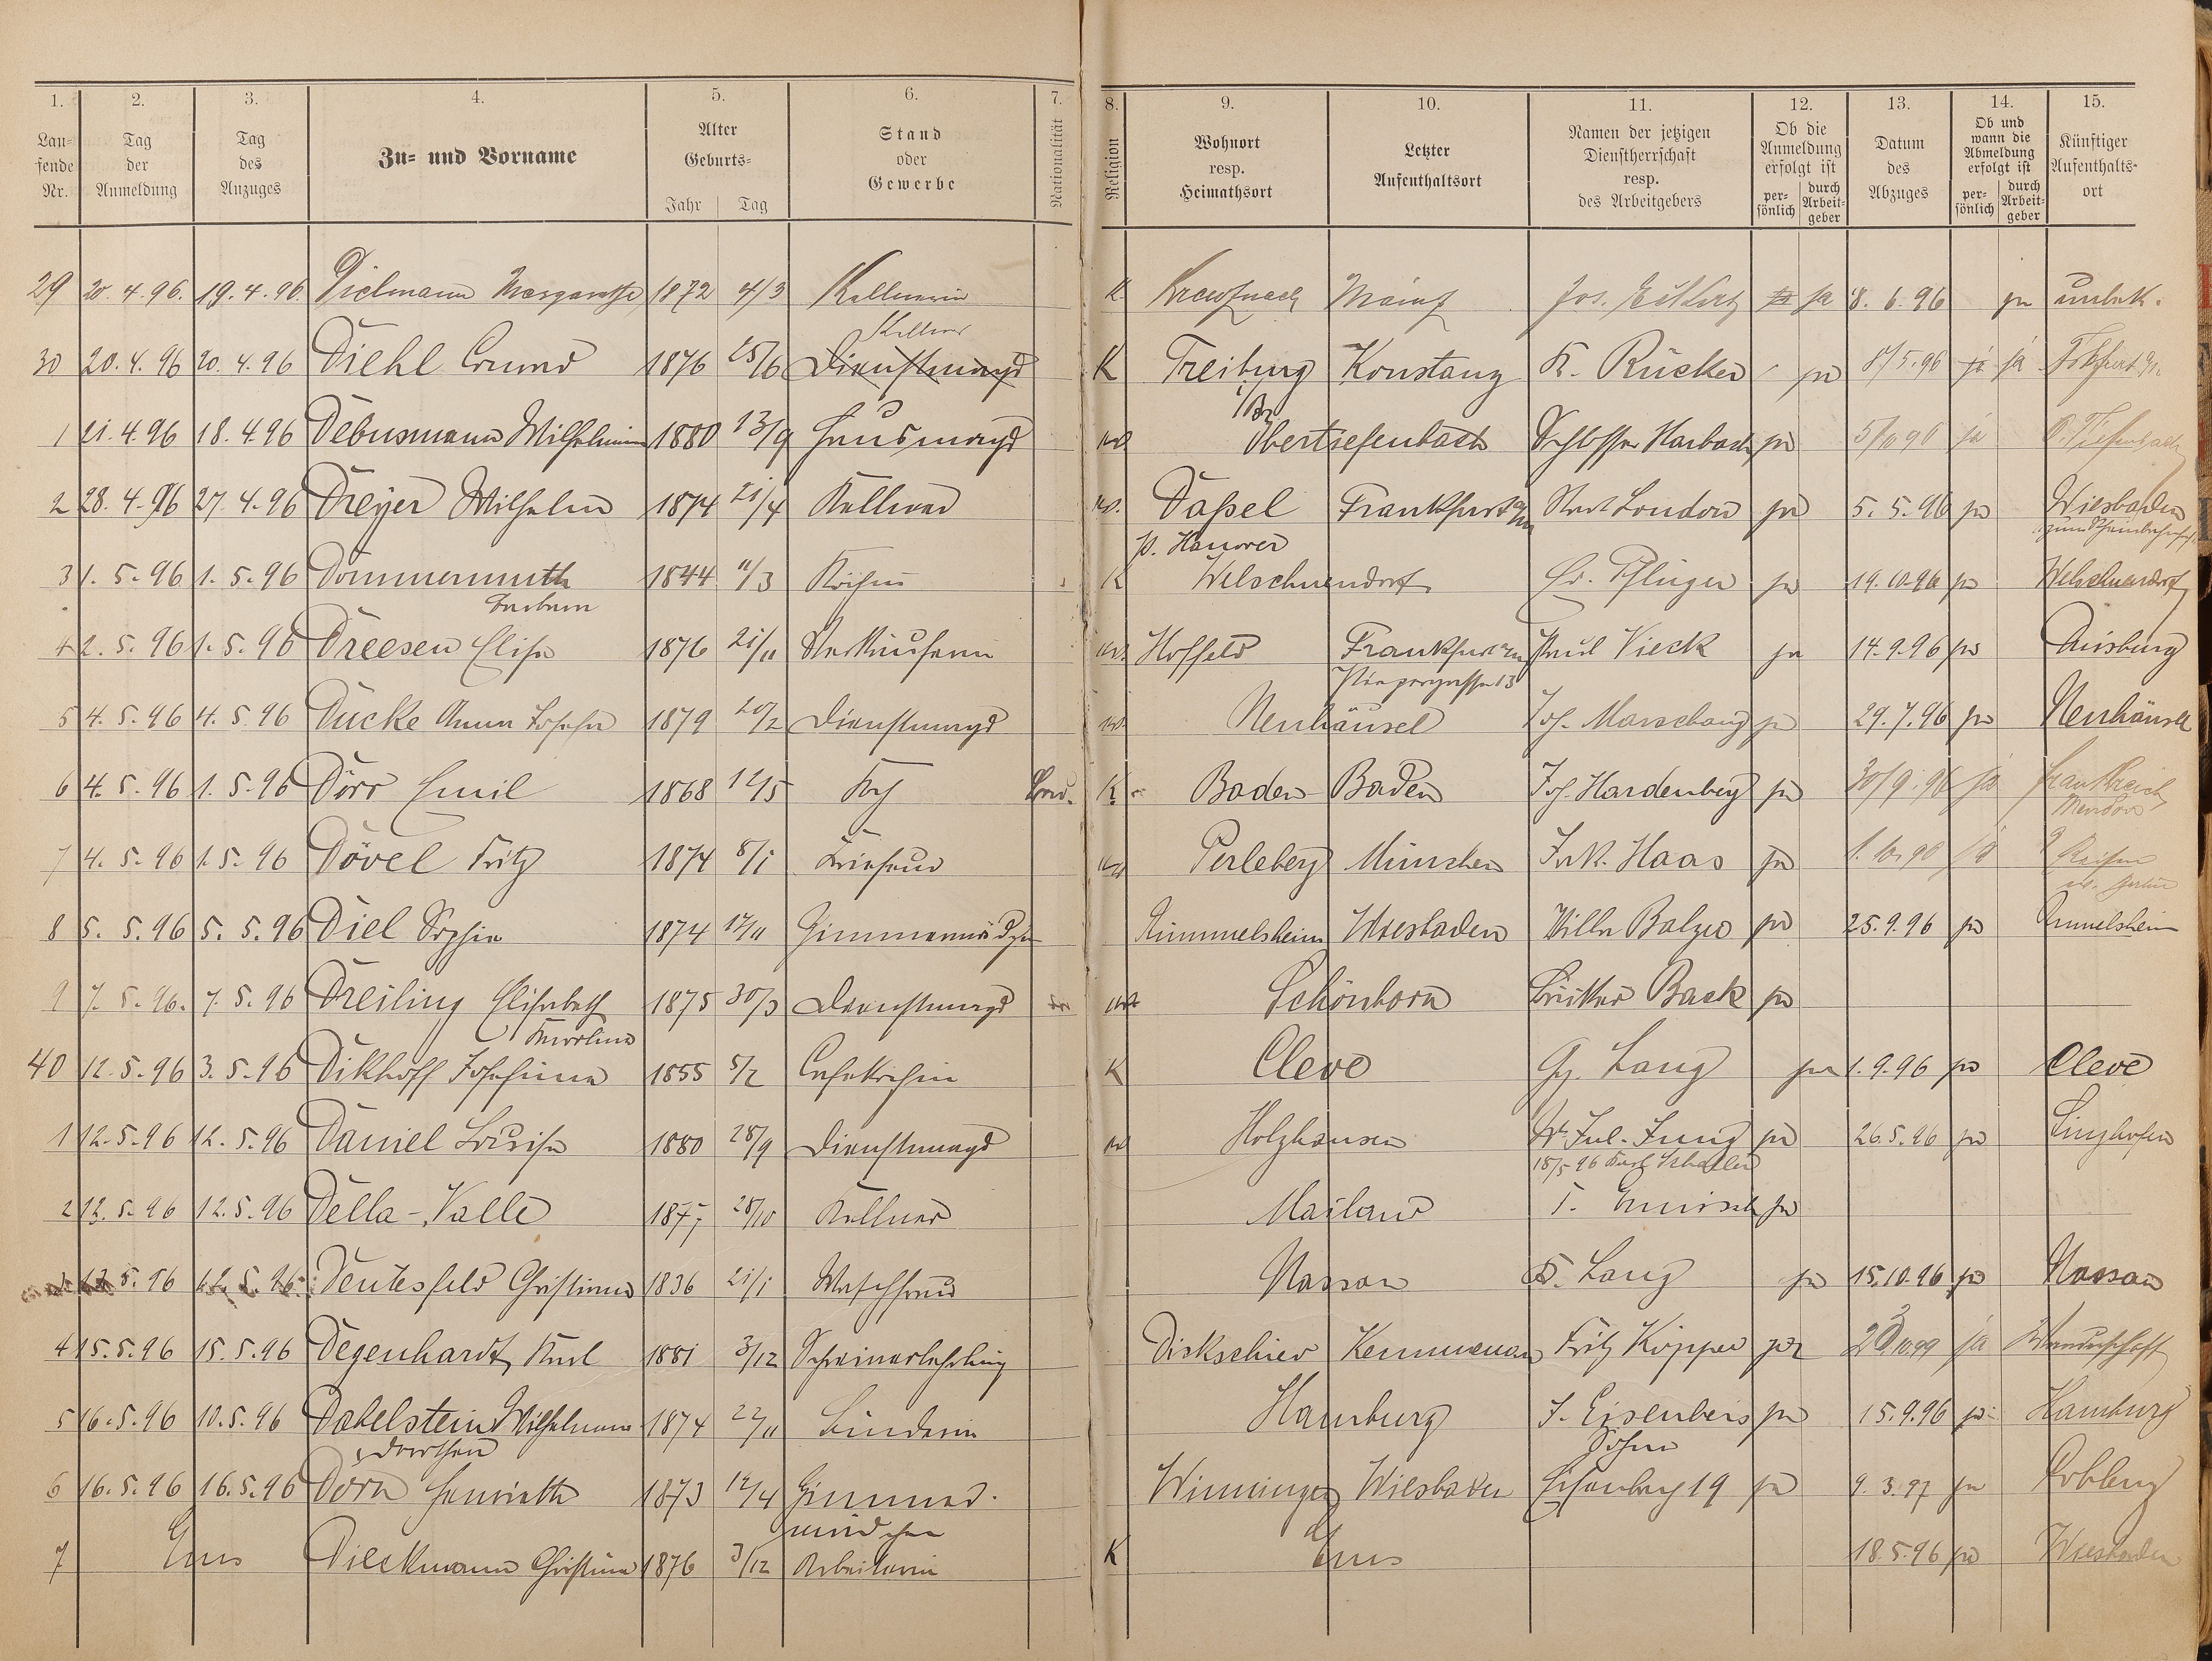 1. 2. 3. 4. 5. 6. 7. 8. 9. 10. 11. 12. 13. 14. 15.
Lau-
fende
Nr.
Tag
der
Anmeldung
Tag
des
Anzuges
Zu- und Vorname
Alter
Geburts-
Jahr Tag
Stand
oder
Gewerbe
Nationalität
Religion
Wohnort
resp.
Heimathsort
Letzter
Aufenthaltsort
Namen der jetzigen
Dienstherrschaft
resp.
des Arbeitgebers
Ob die
Anmeldung
erfolgt ist
per-
sönlich
durch
Arbeit-
geber
Datum
des
Abzuges
Ob und
wann die
Abmeldung
erfolgt ist
per-
sönlich
durch
Arbeit-
geber
Künftiger
Aufenthalts-
ort
29 20. 4. 96. 19. 4. 96. Dielmann Margarethe 1872 4/3 Kellnerin K Kreuznach Mainz Jos. ja 8. 6. 96 ja unbek.
Kellner
30 20. 4. 96 20. 4. 96 Diehl 1876 25/6 Dienstmagd K Freiburg Konstanz K. Rücker ja 8/5. 96 ja ja
i/Br
1 21. 4. 96 18. 4. 96 Debusmann Wilhelmine 1880 13/9 Hausmagd Obertiefenbach Schlosser Harbach ja ja O. Tiefenbach
2 28. 4. 96 27. 4. 96 Dreyer Wilhelm 1874 21/4 Kellner Daßel Frankfurt a/M Stadt London ja 5. 5. 96 ja Wiesbaden
p. Hanover
3 1. 5. 96 1. 5. 96 Dommermuth 1844 11/3 Köchin K Welschneudorf Pflüger ja 19. 10. 96 ja Welschneudorf
Barbara
4 2. 5. 96 1. 5. 96 Dreesen Elise 1876 21/11 Verkäuferin Hoffeld Frankfurt a/M Paul Vieck ja 14. 9. 96 ja Duisburg
5 4. 5. 96 4. 5. 96 Ducke Anna Josefa 1879 20/2 Dienstmagd Neuhäusel Jos. Marschang ja 29. 7. 96 ja Neuhäusel
6 4. 5. 96 1. 5. 96 Dörr Emil 1868 12/5 Koch K Baden-Baden Jos. Hardenberg ja 30/9. 96 ja Frankreich
7 4. 5. 96 1. 5. 96 Dövel Fritz 1874 8/1 Friseur Perleberg München Haas ja ja
8 5. 5. 96 5. 5. 96 Diel Sophie 1874 17/11 Zimmermädchen Rümmelsheim Wiesbaden Villa Balzer ja 25. 9. 96 ja Rümmelsheim
9 7. 5. 96. 7. 5. 96 Dreiling Elisabeth 1875 30/3 Dienstmagd Schönborn Back ja
Karoline
40 12. 5. 96 3. 5. 96 Dikhoff Josefine 1855 5/2 K Cleve Gg. Lang ja 1. 9. 96 ja Cleve
1 12. 5. 96 12. 5. 96 Daniel Louise 1880 28/9 Dienstmagd Holzhausen W. Jul. Jung ja 26. 5. 96 ja Singhofen
15/5 96
2 12. 5. 96 12. 5. 96 Della-Valle 1877 28/10 Kellner Mailand ja
3 13. 5. 96 12. 5. 96. Dentesfeld Christiane 1836 21/1 Waschfrau Nassau Lang ja 15. 10. 96 ja Nassau
4 15. 5. 96 15. 5. 96 Degenhardt Karl 1881 3/12 Schreinerlehrling Dickschied Kemmenau Fritz Köpper ja ja Wanderschaft
5 16. 5. 96 10. 5. 96 Dabelstein Wilhelmine 1874 22/11 Hamburg J. Eisenbeis ja 15. 9. 96 ja Hamburg
Dorothea Söhne
6 16. 5. 96 16. 5. 96 Dorn Henriette 1873 14/4 Zimmer- Winningen Wiesbaden 19 ja 9. 3. 97 ja Koblenz
mädchen
7 Ems Dieckmann Christine 1876 3/12 Arbeiterin K Ems 18. 5. 96 ja Wiesbaden